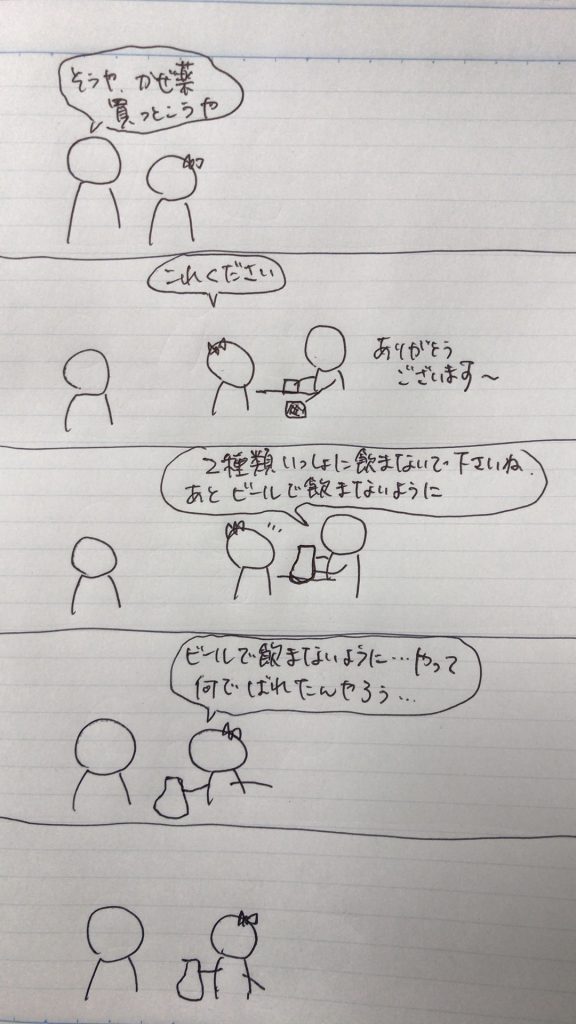 そうや、かぜ薬
買っとこうや
これください
ありがとう
ございます〜
2種類いっしょに飲まないで下さいね.
あとビールで飲まないように
ビールで飲まないように…やって
何でばれたんやろう…